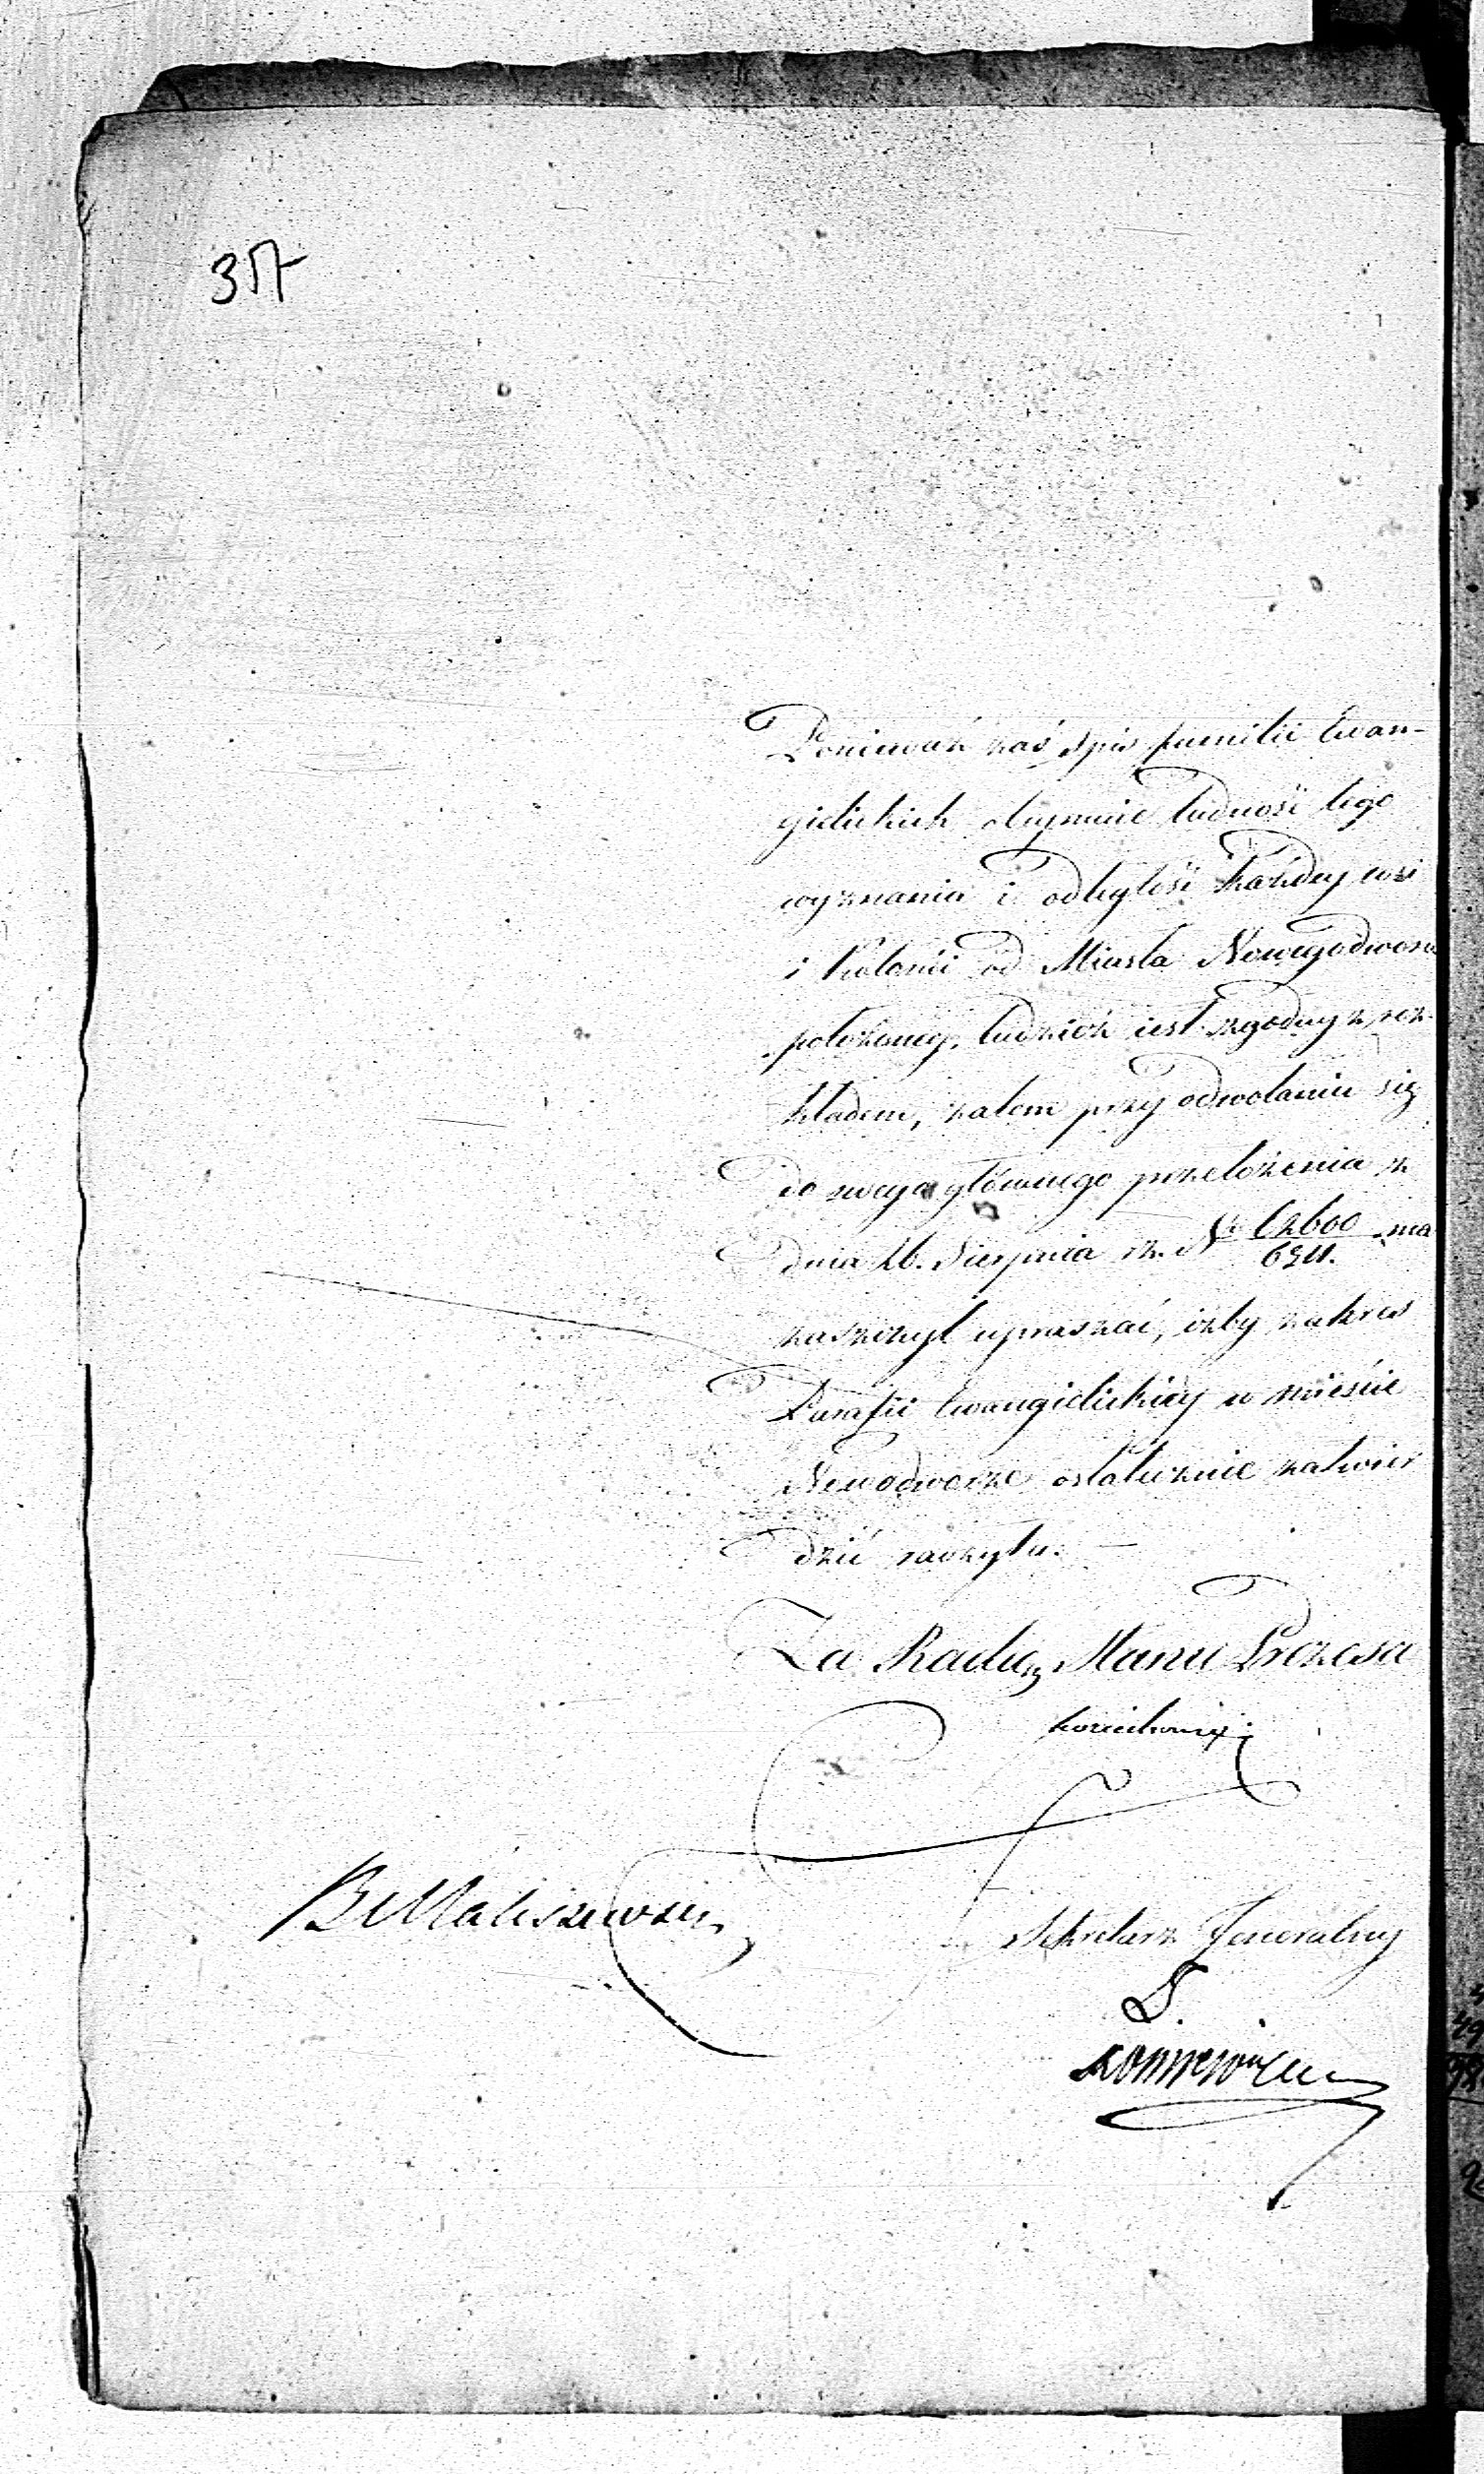 37
Ponieważ zaś spis familii Ewan-
gielickich obeymuie ludność tego
wyznania i odległość każdey wsi
i Kolonii od Miasta Nowegodworu
położoney, tudzież iest zgodny z roz-
kładem, zatem przy odwołaniu się
do swego głównego przełożenia z
dnia 26. Sierpnia r. b. N ma
zaszczyt upraszać, iżby zakres
Parafii Ewangielickiey w mieście
Nowodworze ostatecznie zatwier
dzić raczyła.
Za Radcę Stanu Prezesa
B Maliszewski
Sekretarz Jeneralny